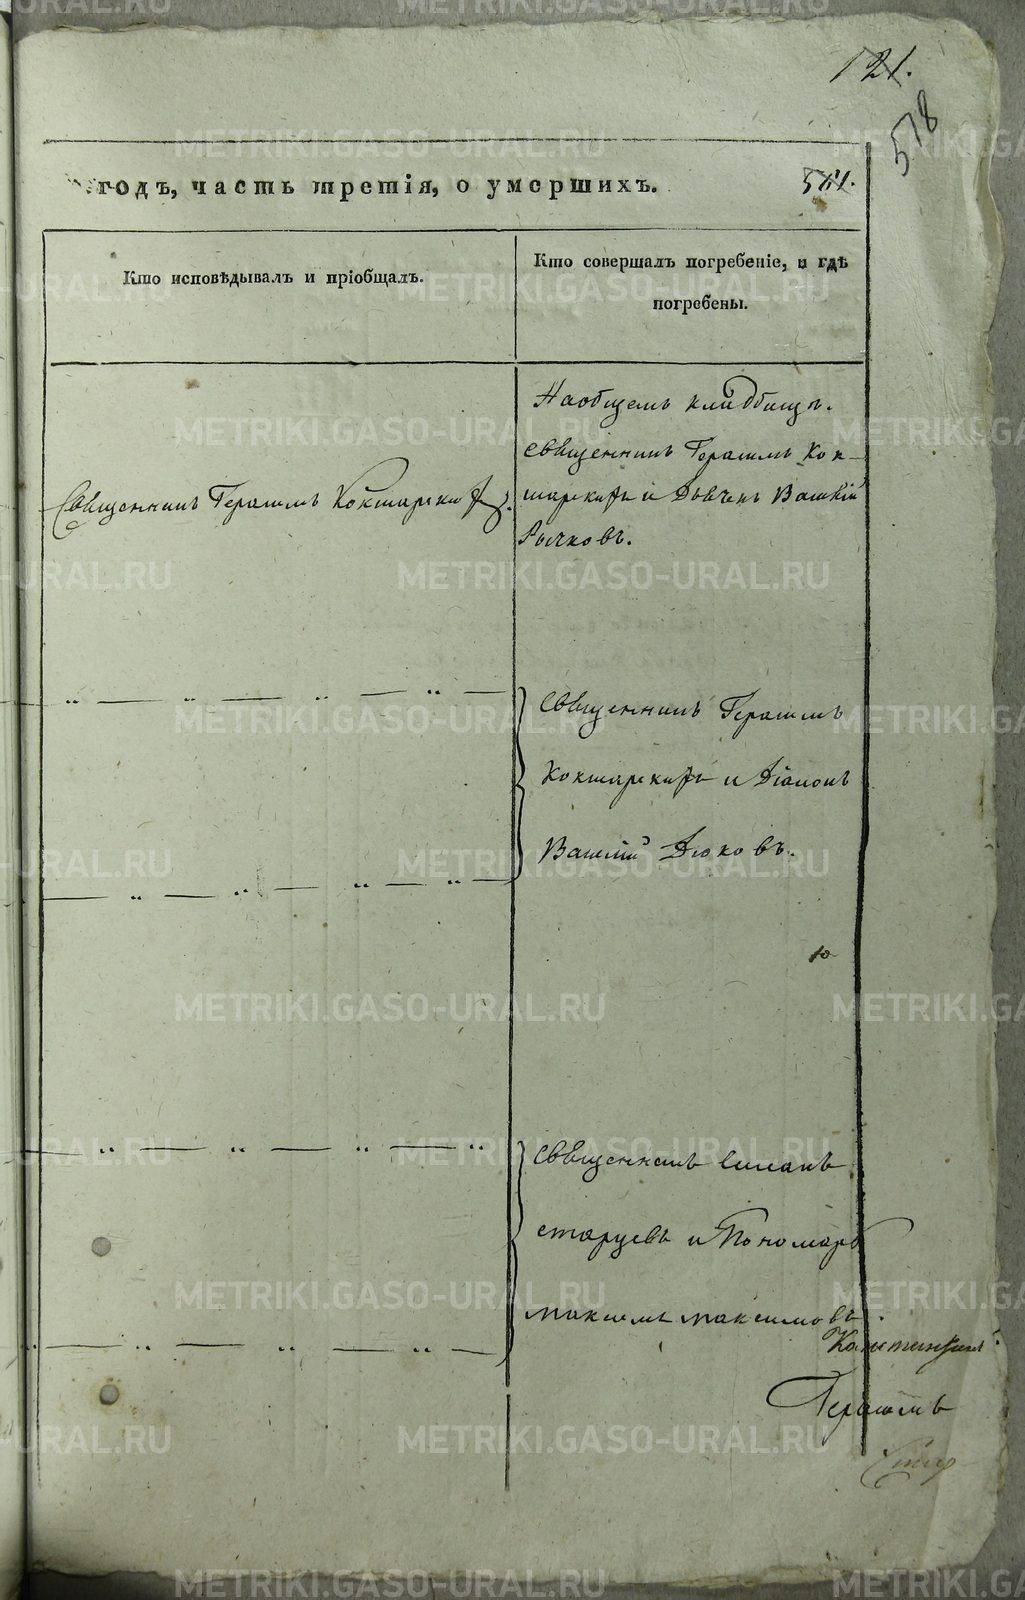 121.
518
годъ, часть третія, о умершихъ.
Кто исповѣдывалъ и пріобщалъ.
Кто совершалъ погребеніе, и гдѣ
погребены.
На общемъ кладбищѣ.
Священникъ Герасимъ Кок-
шарскихъ и Дьячекъ Василій
Рычковъ.
Священникъ Герасимъ Кокшарскихъ.
Священникъ Герасимъ
Кокшарскихъ и Діаконъ
Василій Дюковъ.
Священникъ Симеонъ
Старцевъ и Пономарь
Максимъ Максимовъ.
Герасимъ
METRIKI.GASO-URAL.RU